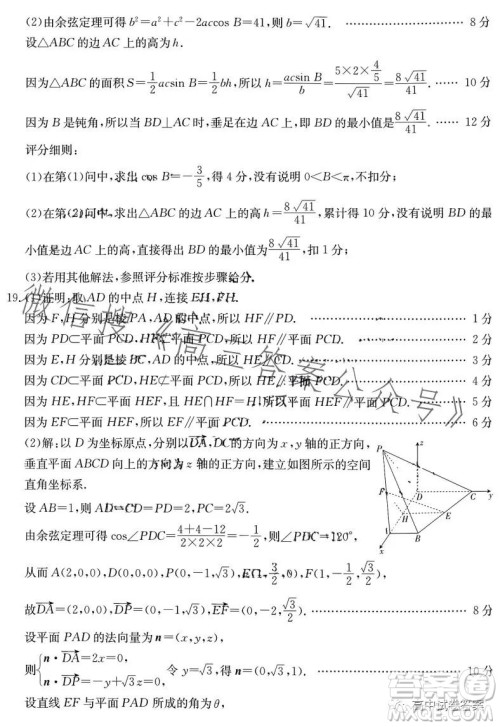 (2)由余弦定理可得 b²=a²+c²-2accos B=41,则 b=√41. …… 8分
设△ABC 的边 AC 上的高为 h.
因为△ABC 的面积 S=1/2 acsin B=1/2 bh,所以 h=acsin B/b=(5×2×4/5)/√41=8√41/41. …… 10分
因为 B 是钝角,所以当 BD⊥AC 时,垂足在边 AC 上,即 BD 的最小值是 8√41/41. …… 12分
评分细则:
(1)在第(1)问中,求出 cos B=-3/5,得 4 分,没有说明 0<B<π,不扣分;
(2)在第(2)问中,求出 AC 边上的高是 8√41/41,累计得 10 分,没有说明 BD 的最
小值是边 AC 上的高,直接得出 BD 的最小值是 8√41/41,扣 1 分;
(3)若用其他解法,参照评分标准按步骤给分.
19. (1)证明:取 AD 的中点 H,连接 EH,FH.
因为 F,H 分别是棱 PA,AD 的中点,所以 HF∥PD. …… 1分
因为 PD⊂平面 PCD,HF⊄平面 PCD,所以 HF∥平面 PCD. …… 2分
因为 E,H 分别是棱 BC,AD 的中点,所以 HE∥CD. …… 3分
因为 CD⊂平面 PCD,HE⊄平面 PCD,所以 HE∥平面 PCD. …… 4分
因为 HE,HF⊂平面 HEF,且 HE∩HF=H,所以平面 HEF∥平面 PCD. …… 5分
因为 EF⊂平面 HEF,所以 EF∥平面 PCD. …… 6分
(2)解:以 D 为坐标原点,分别以 DA,DC 的方向为 x,y 轴的正方向,
垂直平面 ABCD 向上的方向为 z 轴的正方向,建立如图所示的空间
直角坐标系.
设 AB=1,则 AD=CD=PD=2,PC=2√3.
由余弦定理可得 cos∠PDC=(4+4-12)/(2×2×2)=-1/2,则∠PDC=120°,
从而 A(2,0,0),D(0,0,0),P(0,-1,√3),E(1,3/2,0),F(1,-1/2,√3/2),
故DA=(2,0,0),DP=(0,-1,√3),EF=(0,-2,√3/2). …… 8分
设平面 PAD 的法向量为 n=(x,y,z),
则{n·DA=2x=0, n·DP=-y+√3z=0, 令 y=√3,得 n=(0,√3,1). …… 10分
设直线 EF 与平面 PAD 所成的角为 θ,
P
z
F
D
C
y
H
E
A
B
x
微信搜《高三答案公众号》
高中试卷答案
答案圈
MXQE.COM